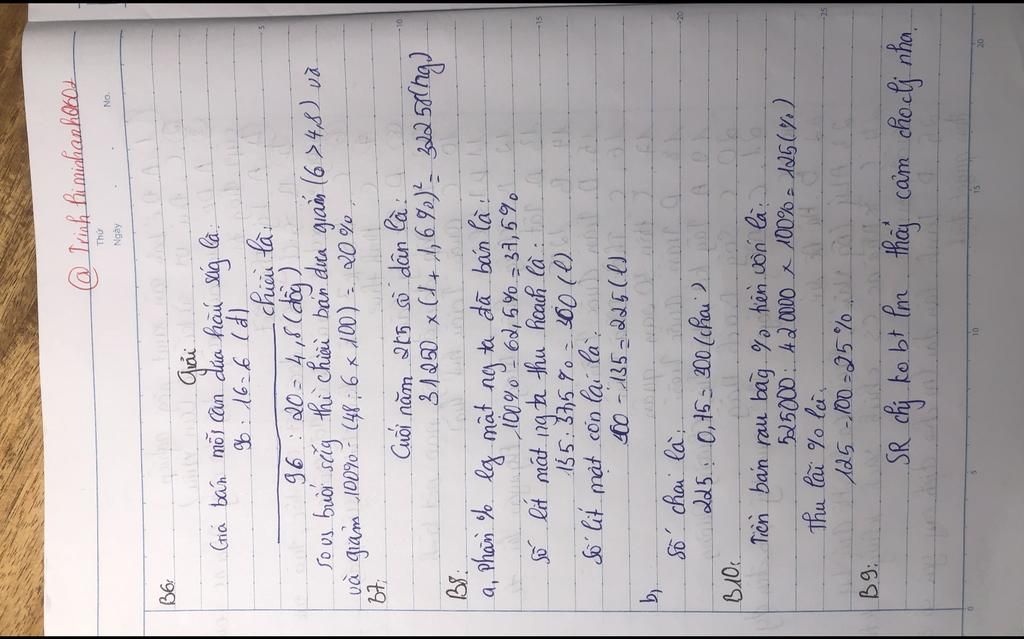 @Trinhkimchanh0601
Thứ
Ngày
No.
B6: Giải
Giá bán mỗi cân dưa hấu ság là:
96 : 16 = 6 (đ)
chiều là:
96 : 20 = 4,8 (đồg)
so vs buổi ság thì chiều bán dưa giảm (6 > 4,8) và
và giảm 100% - (4,8 : 6 x 100) = 20%.
B7:
Cuối năm 2k5 số dân là:
31250 x (1 + 1,6%)² = 32258 (ng)
B8:
a, Phần % lg mật ng ta đã bán là:
100% - 62,5% = 37,5%
Số lít mật ng ta thu hoạch là:
135 : 37,5% = 360 (l)
Số lít mật còn lại là:
360 - 135 = 225 (l)
b,
Số chai là:
225 : 0,75 = 300 (chai)
B10:
Tiền bán rau bằg % tiền vốn là:
525000 : 420000 x 100% = 125 (%)
Thu lãi % là:
125 - 100 = 25%.
B9:
SR cj ko bt lm thấy cảm cho cj nha.